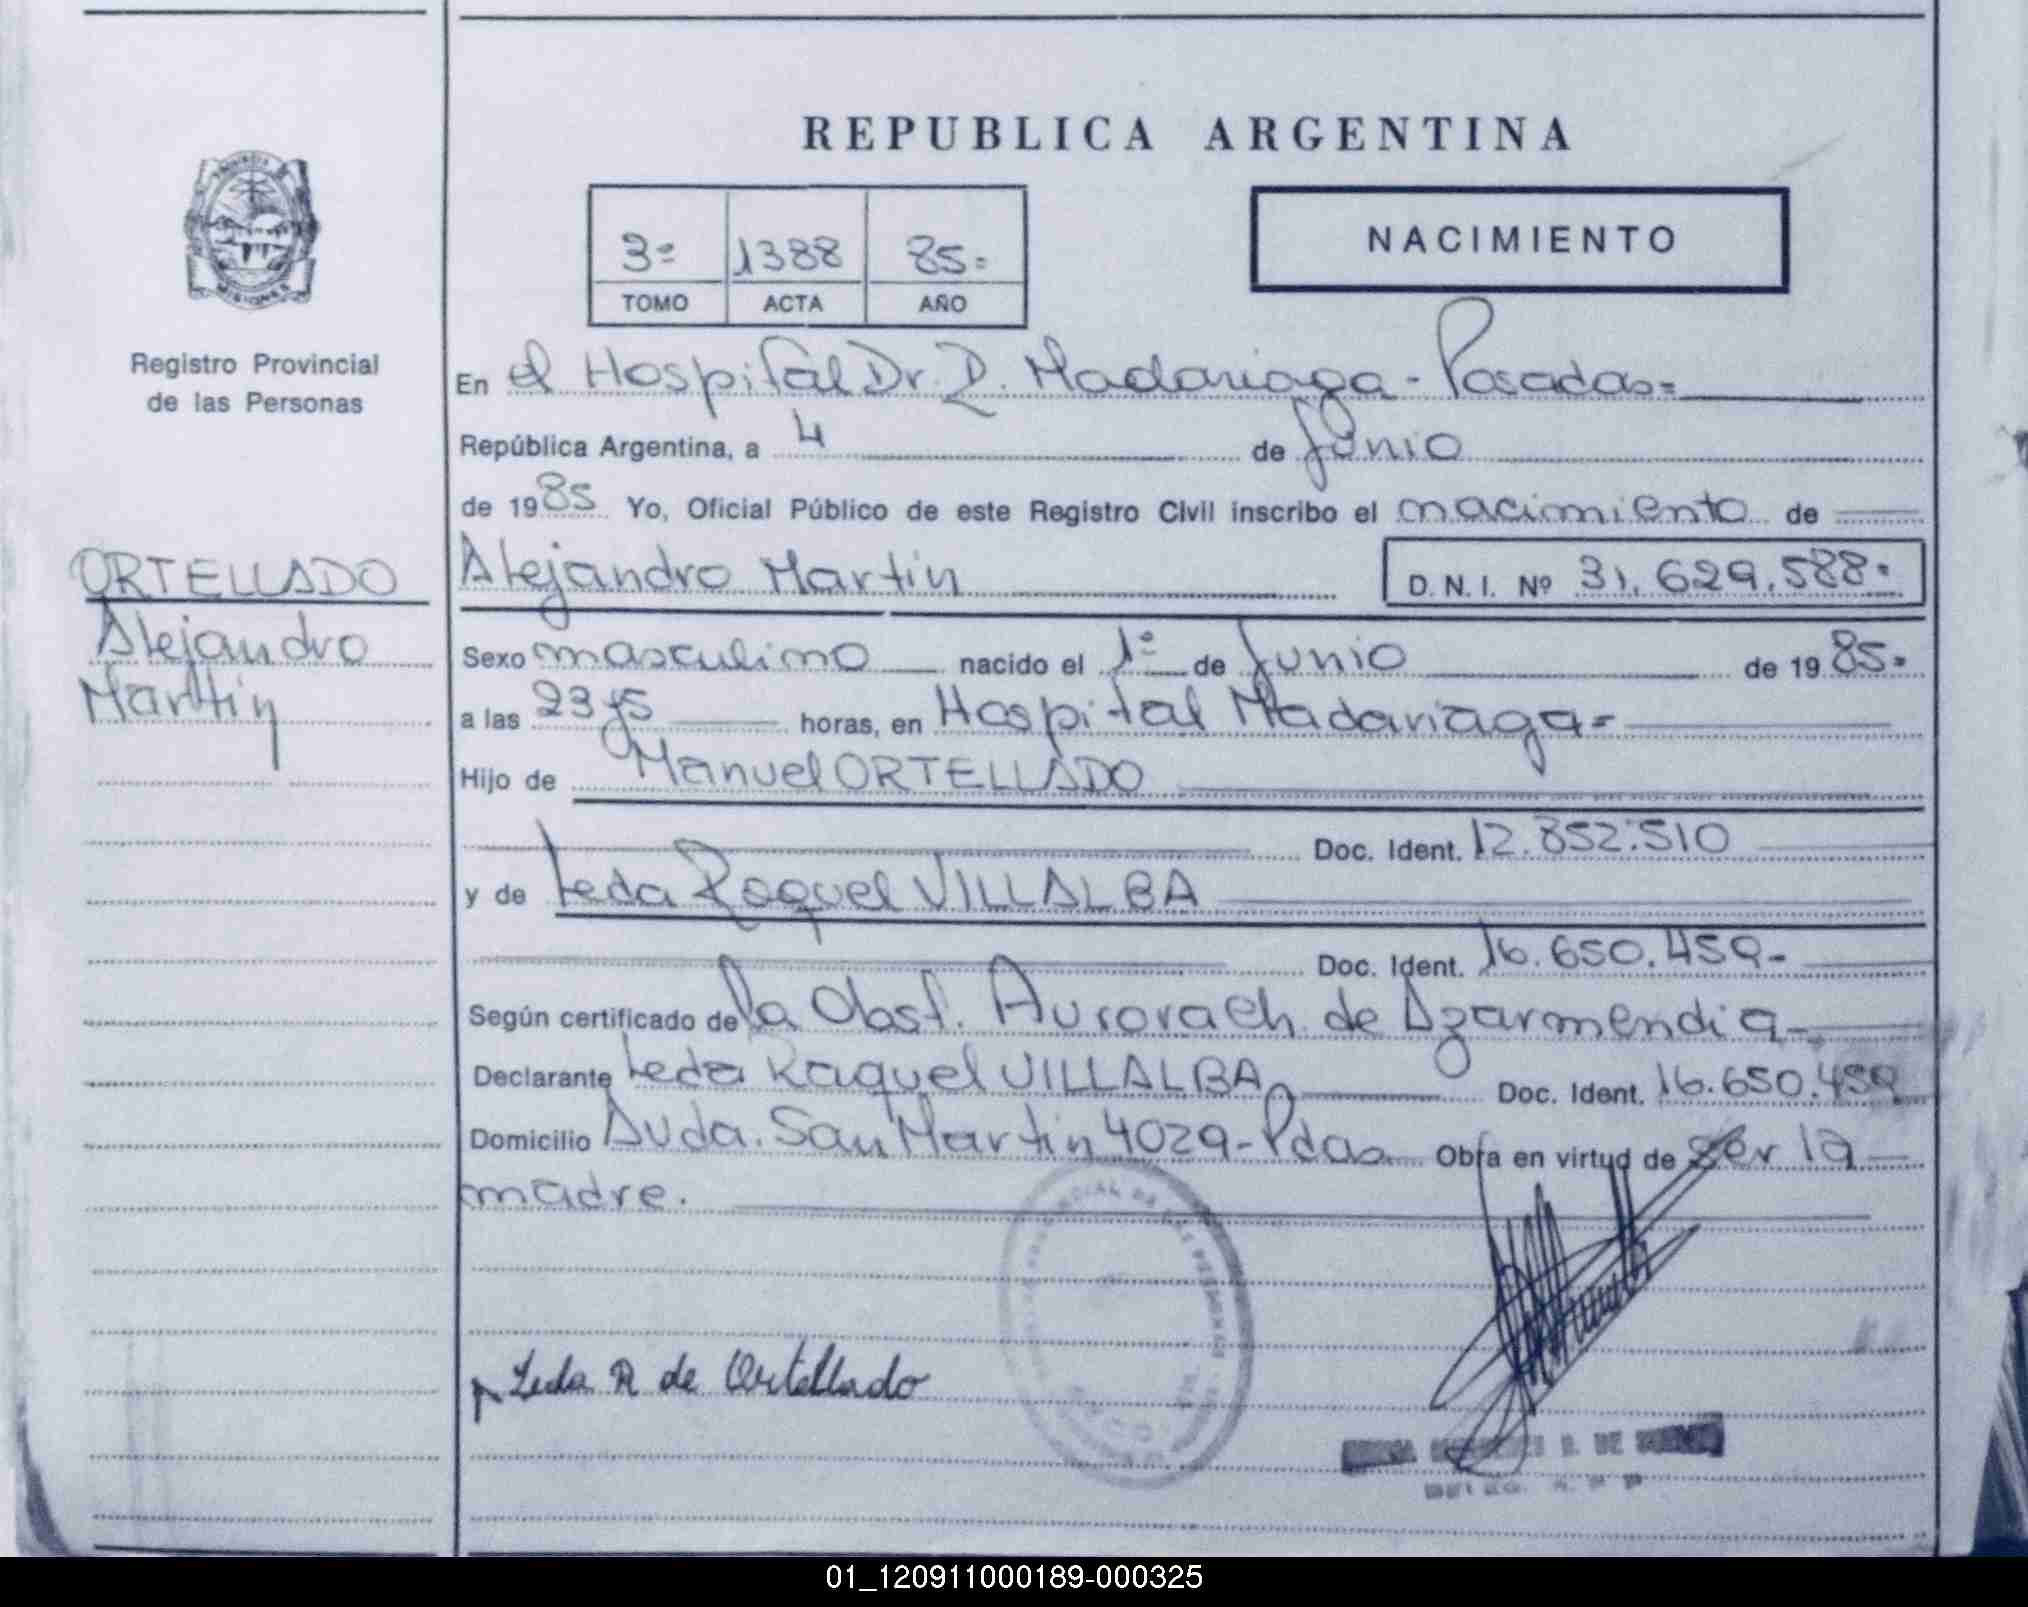 REPUBLICA ARGENTINA
3º 1388 85=
TOMO ACTA AÑO
NACIMIENTO
MISIONES
Registro Provincial
de las Personas
ORTELLADO
Alejandro
Martin
En el Hospital Dr. R. Madariaga - Posadas=
República Argentina, a 4 de Junio
de 1985 Yo, Oficial Público de este Registro Civil inscribo el nacimiento de
Alejandro Martin D. N. I. Nº 31.629.588.
Sexo masculino nacido el 1º de Junio de 1985.
a las horas, en Hospital Madariaga=
Hijo de Manuel ORTELLADO
Doc. Ident. 12.852.510
y de Leda Raquel VILLALBA
Doc. Ident. 16.650.459-
Según certificado de la Obst. de Azarmendia-
Declarante Leda Raquel VILLALBA Doc. Ident. 16.650.459
Domicilio Avda. San Martin 4029-Pdas Obra en virtud de ser la
madre.
Leda R de Ortellado
01_120911000189-000325